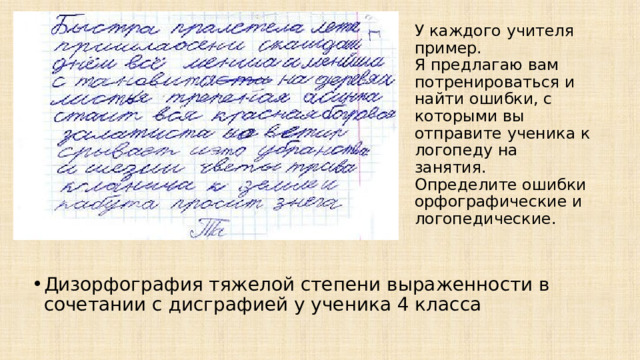 Быстра пралетела лета
пришлаосени скашдам
днём всё менша и менйша
с тановита на деревях
листья трепеная асинка
стаит вся краснаябогровая
залатиста но ветир
срывает иэто убранства
и шезли цветы трава
кланица к земли и
кабута просит знега
У каждого учителя
пример.
Я предлагаю вам
потренироваться и
найти ошибки, с
которыми вы
отправите ученика к
логопеду на
занятия.
Определите ошибки
орфографические и
логопедические.
• Дизорфография тяжелой степени выраженности в
сочетании с дисграфией у ученика 4 класса